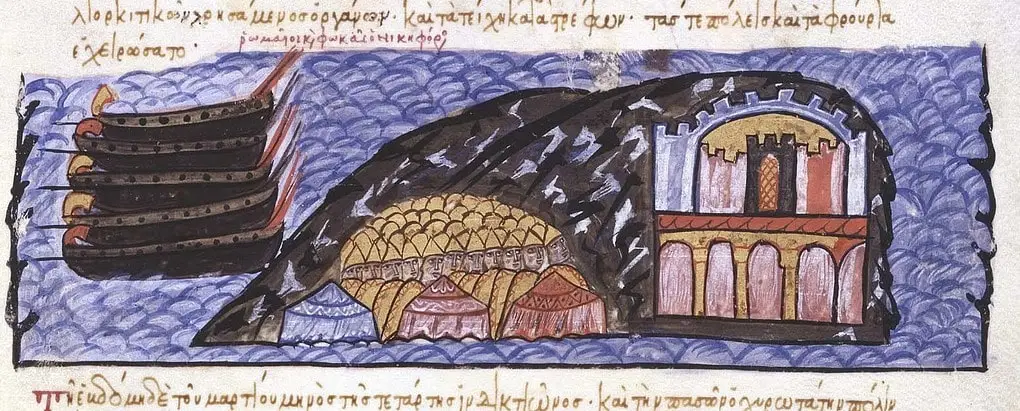 λιορκιτικῶν χρησάμενος ὀργάνων· καὶ τὰ τείχη καταστρέφων· τάς τε πόλεις καὶ τὰ φρούρια
ἐχειρώσατο·
ῥωμαῖοι κ φωκᾶς ὁ νικηφόρ
τῆ ἑβδόμη δὲ τοῦ μαρτίου μηνὸς τῆς τετάρτης ἰνδικτιῶνος· καὶ τὴν πασῶν ὀχυρωτάτην πόλιν